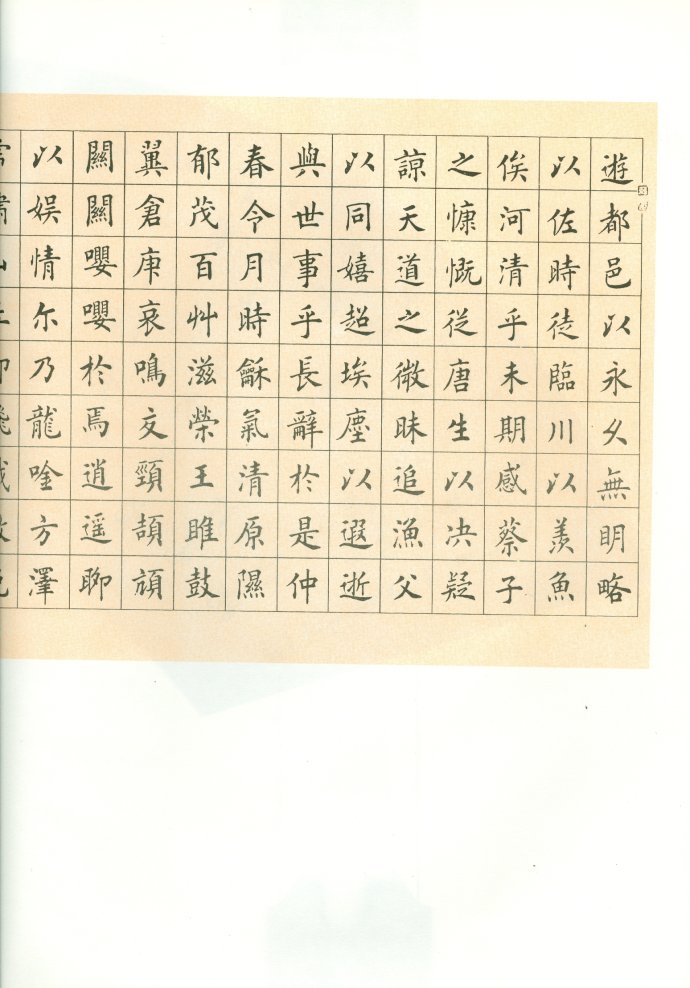 遊都邑以永久無明略
以佐時徒臨川以羨魚
俟河清乎未期感蔡子
之慷慨從唐生以决疑
諒天道之微昧追漁父
以同嬉超埃塵以遐逝
與世事乎長辭於是仲
春令月時龢氣清原隰
郁茂百艸滋榮王雎鼓
翼倉庚哀鳴交頸頡頏
關關嚶嚶於焉逍遥聊
以娱情尔乃龍唫方澤